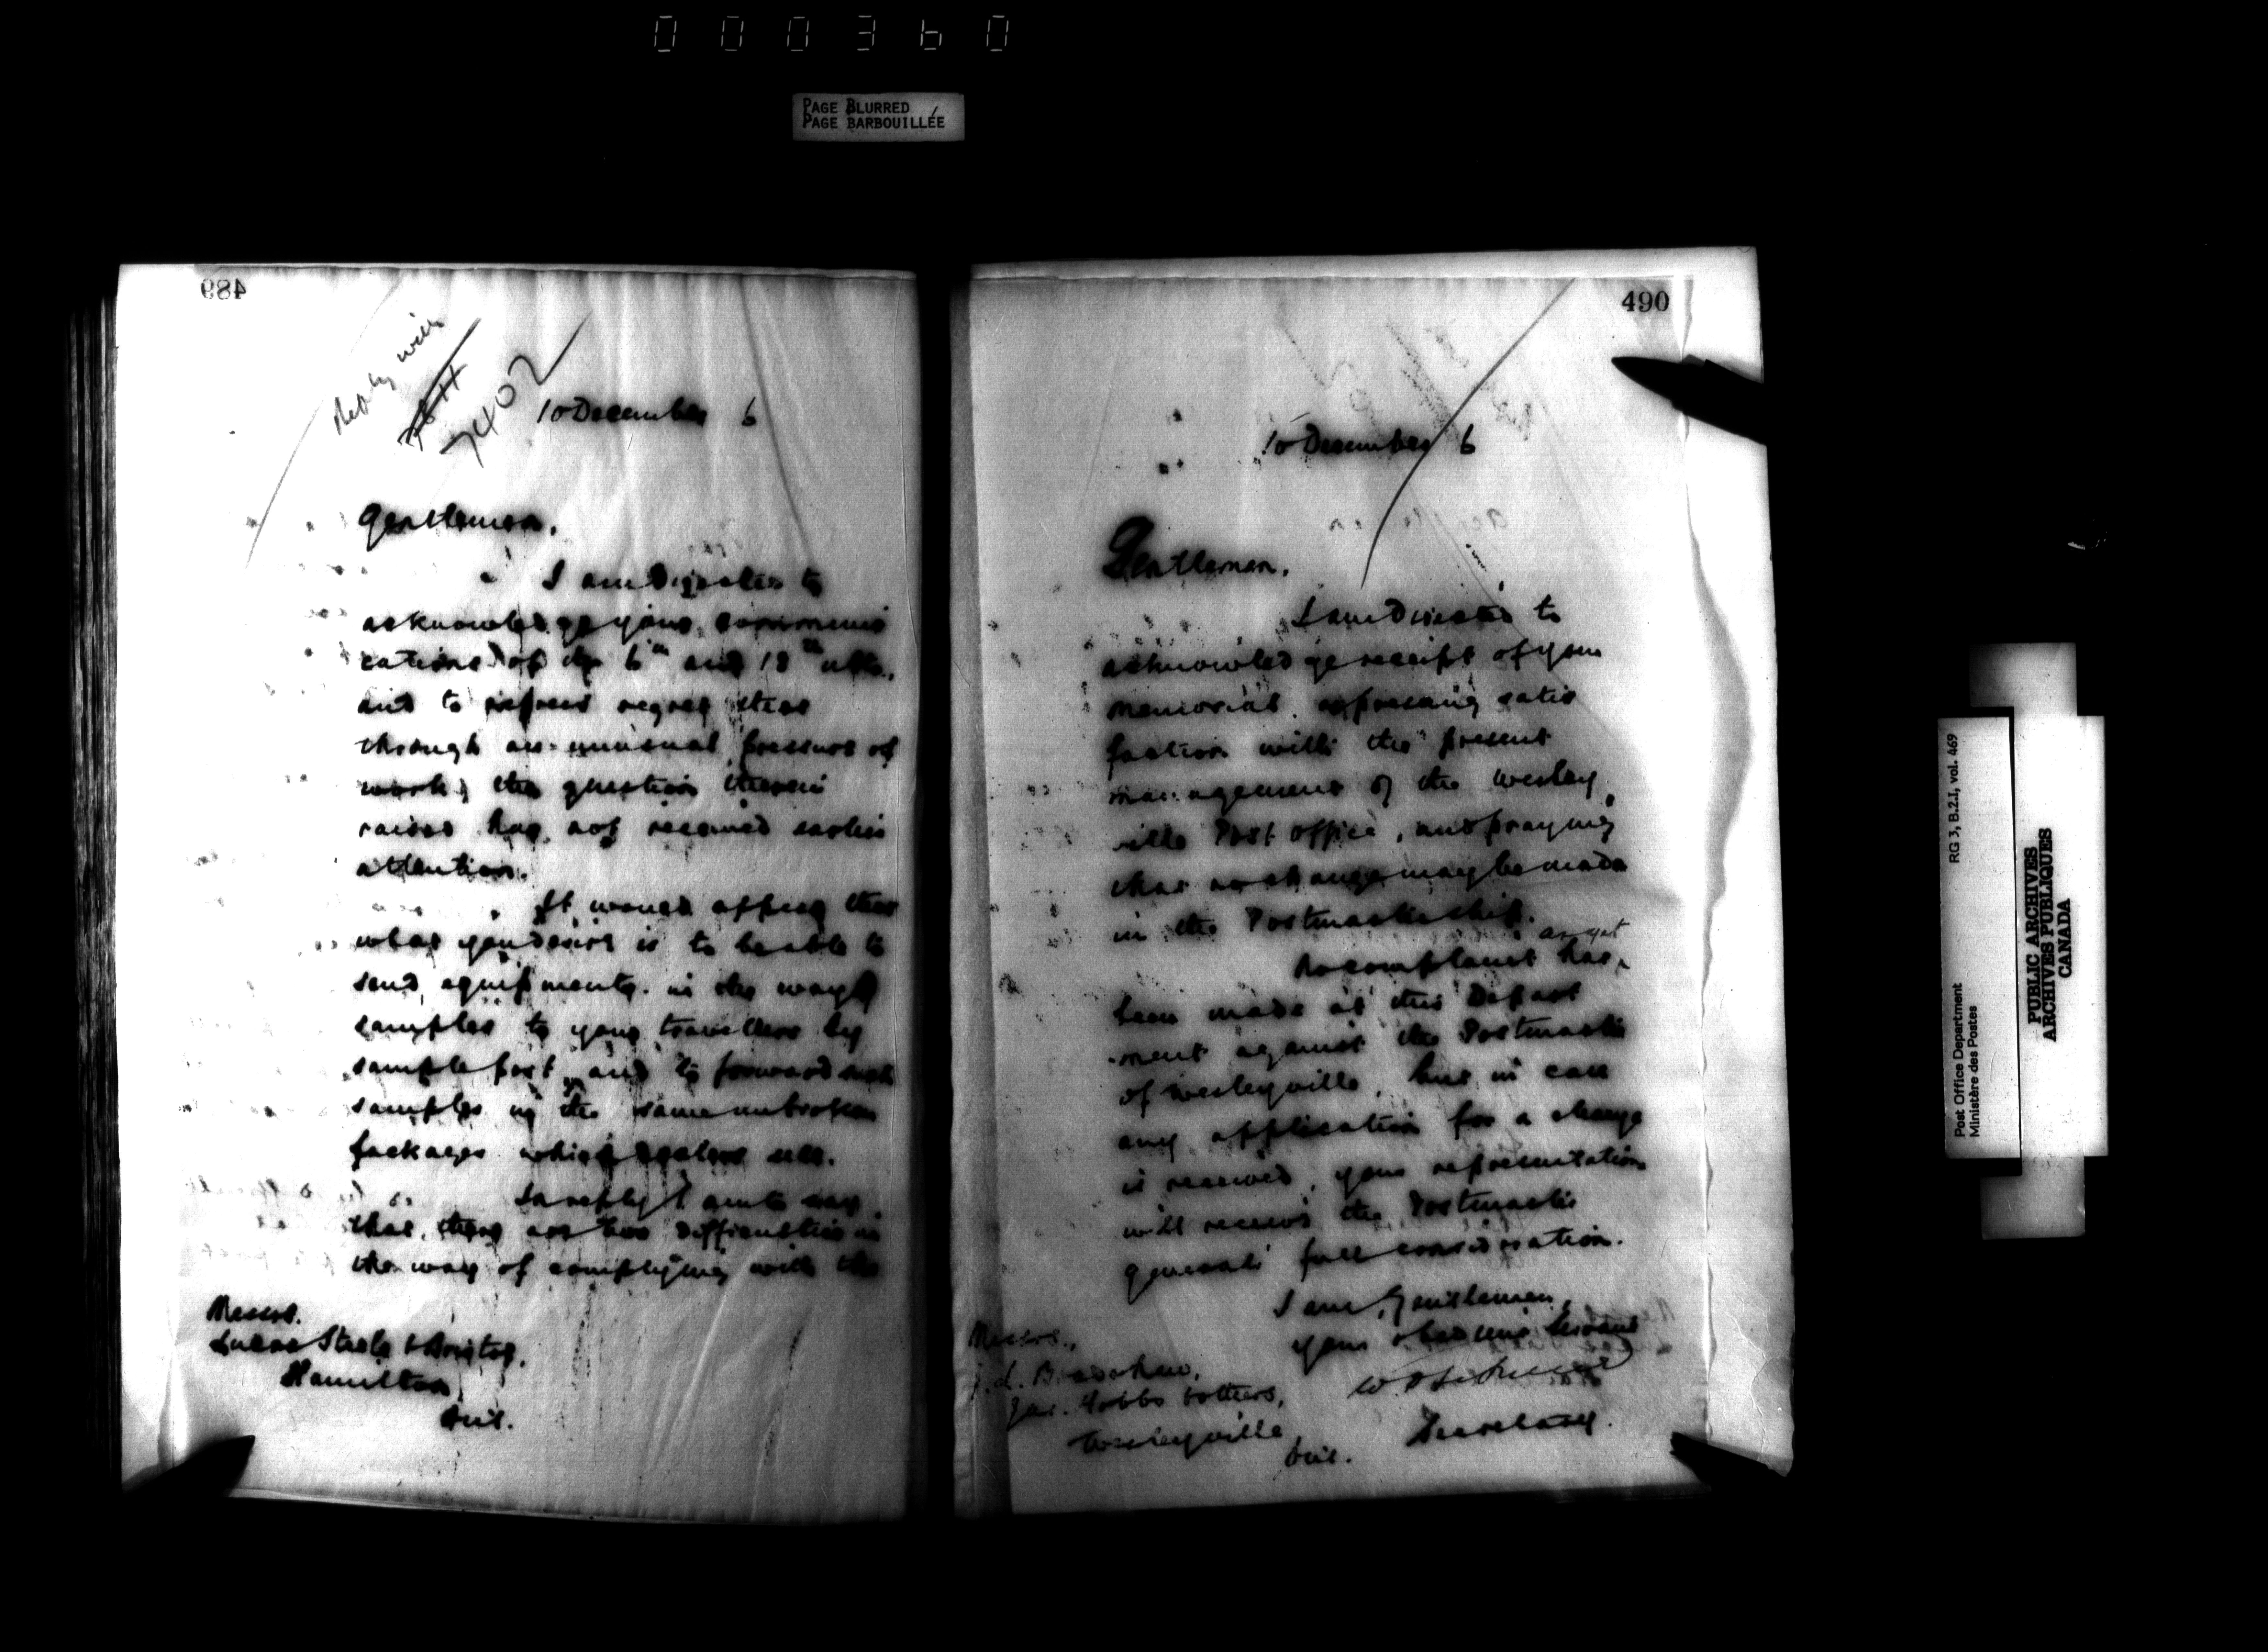 000360
PAGE BLURRED
PAGE BARBOUILLÉE
489
7402
10 December 6
Gentlemen.
I am Directed to
acknowledge your communi
cations of the 6th and 18th ulto.
and to express regret that
through an unusual pressure of
work, the question therein
raised has not received earlier
attention.
It would appear that
what you desire is to be able to
send equipments in the way of
samples to your travellers by
sample post, and to forward such
samples in the same unbroken
packages which dealers sell.
In reply I am to say
that there are two difficulties in
the way of complying with the
Messrs.
Lucas Steele & Bristol,
Hamilton,
Ont.
490
10 December 6
Gentlemen.
I am Directed to
acknowledge receipt of your
memorial expressing satis
faction with the present
management of the Wesley
ville Post Office, and praying
that no change may be made
in the Postmastership.
as yet
No complaint has
been made at this Depart
ment against the Postmaster
of Wesleyville, but in case
any application for a change
is received, your representation
will receive the Postmaster
General's full consideration.
I am, Gentlemen,
Your obedient Servant
Secretary.
Messrs.,
Hobbs & others,
Wesleyville
Ont.
Post Office Department RG 3, B.2.I, vol. 469
Ministère des Postes
PUBLIC ARCHIVES
ARCHIVES PUBLIQUES
CANADA